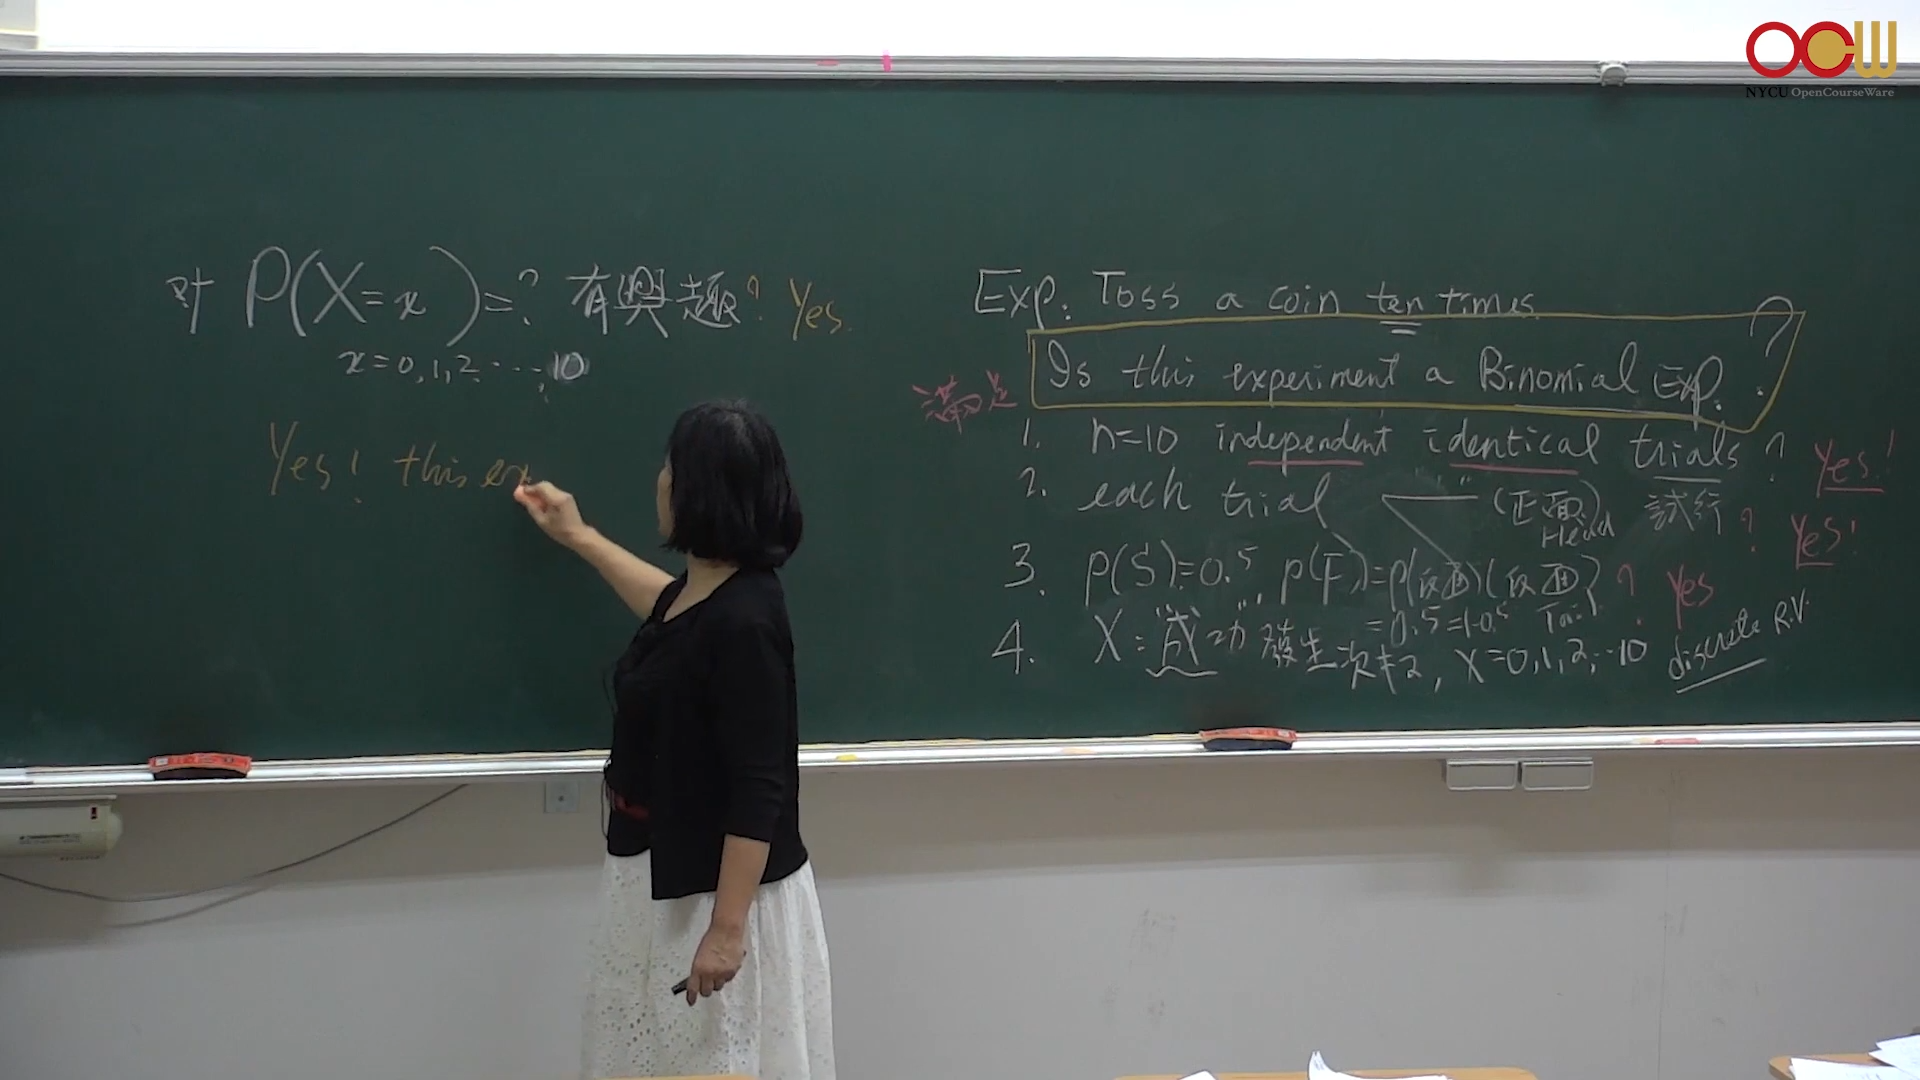 OCW
NYCU OpenCourseWare
对 P(X=x)=? 有興趣? Yes.
x=0,1,2.....10
Yes! this ex
Exp. Toss a coin ten times
Is this experiment a Binomial Exp. ?
滿足
1. n=10 independent identical trials ? Yes!
2. each trial (正面) 試行 ? Yes!
Head
3. P(S)=0.5 P(F)=P(反面)(反面) ? Yes
=0.5=1-0.5 Tail
4. X: "成功" 發生次数, X=0,1,2,..10 discrete R.V.